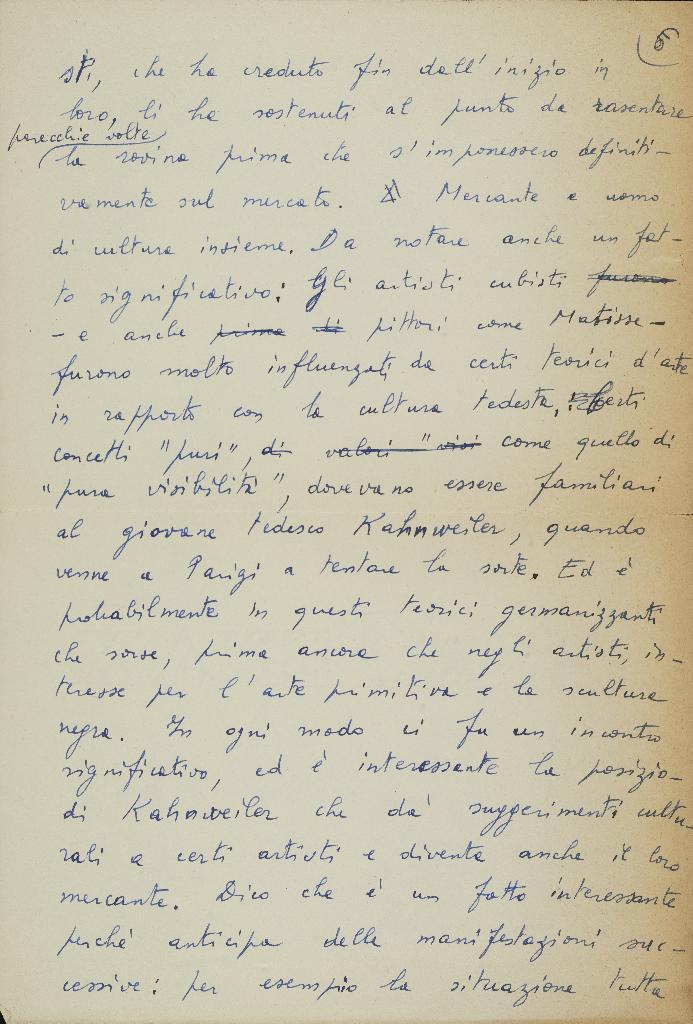 5
sì, che ha creduto fin dall'inizio in
loro, li ha sostenuti al punto da rasentare
parecchie volte
la rovina prima che s'imponessero definiti-
vamente sul mercato. Mercante e uomo
di cultura insieme. Da notare anche un fat-
to significativo: Gli artisti cubisti furono
- e anche prima di pittori come Matisse -
furono molto influenzati da certi teorici d'arte
in rapporto con la cultura tedesca. Certi
concetti "puri", di valori "visi come quello di
"pura visibilità", dovevano essere familiari
al giovane tedesco Kahnweiler, quando
venne a Parigi a tentare la sorte. Ed è
probabilmente in questi teorici germanizzanti
che sorse, prima ancora che negli artisti, in-
teresse per l'arte primitiva e la scultura
negra. In ogni modo ci fu un incontro
significativo, ed è interessante la posizio-
di Kahnweiler che dà suggerimenti cultu-
rali a certi artisti e diventa anche il loro
mercante. Dico che è un fatto interessante
perché anticipa delle manifestazioni suc-
cessive: per esempio la situazione tutta